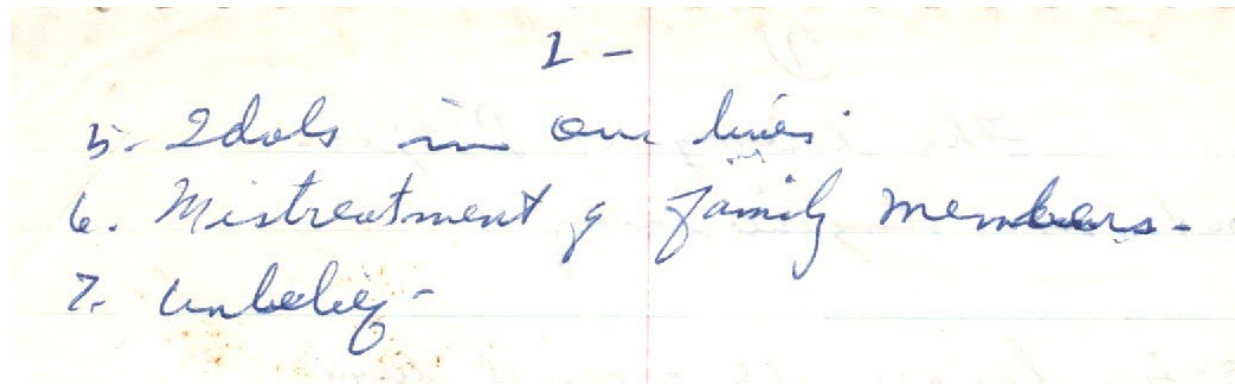 2 -
5. Idols in our lives.
6. Mistreatment of family members -
7. Unbelief -